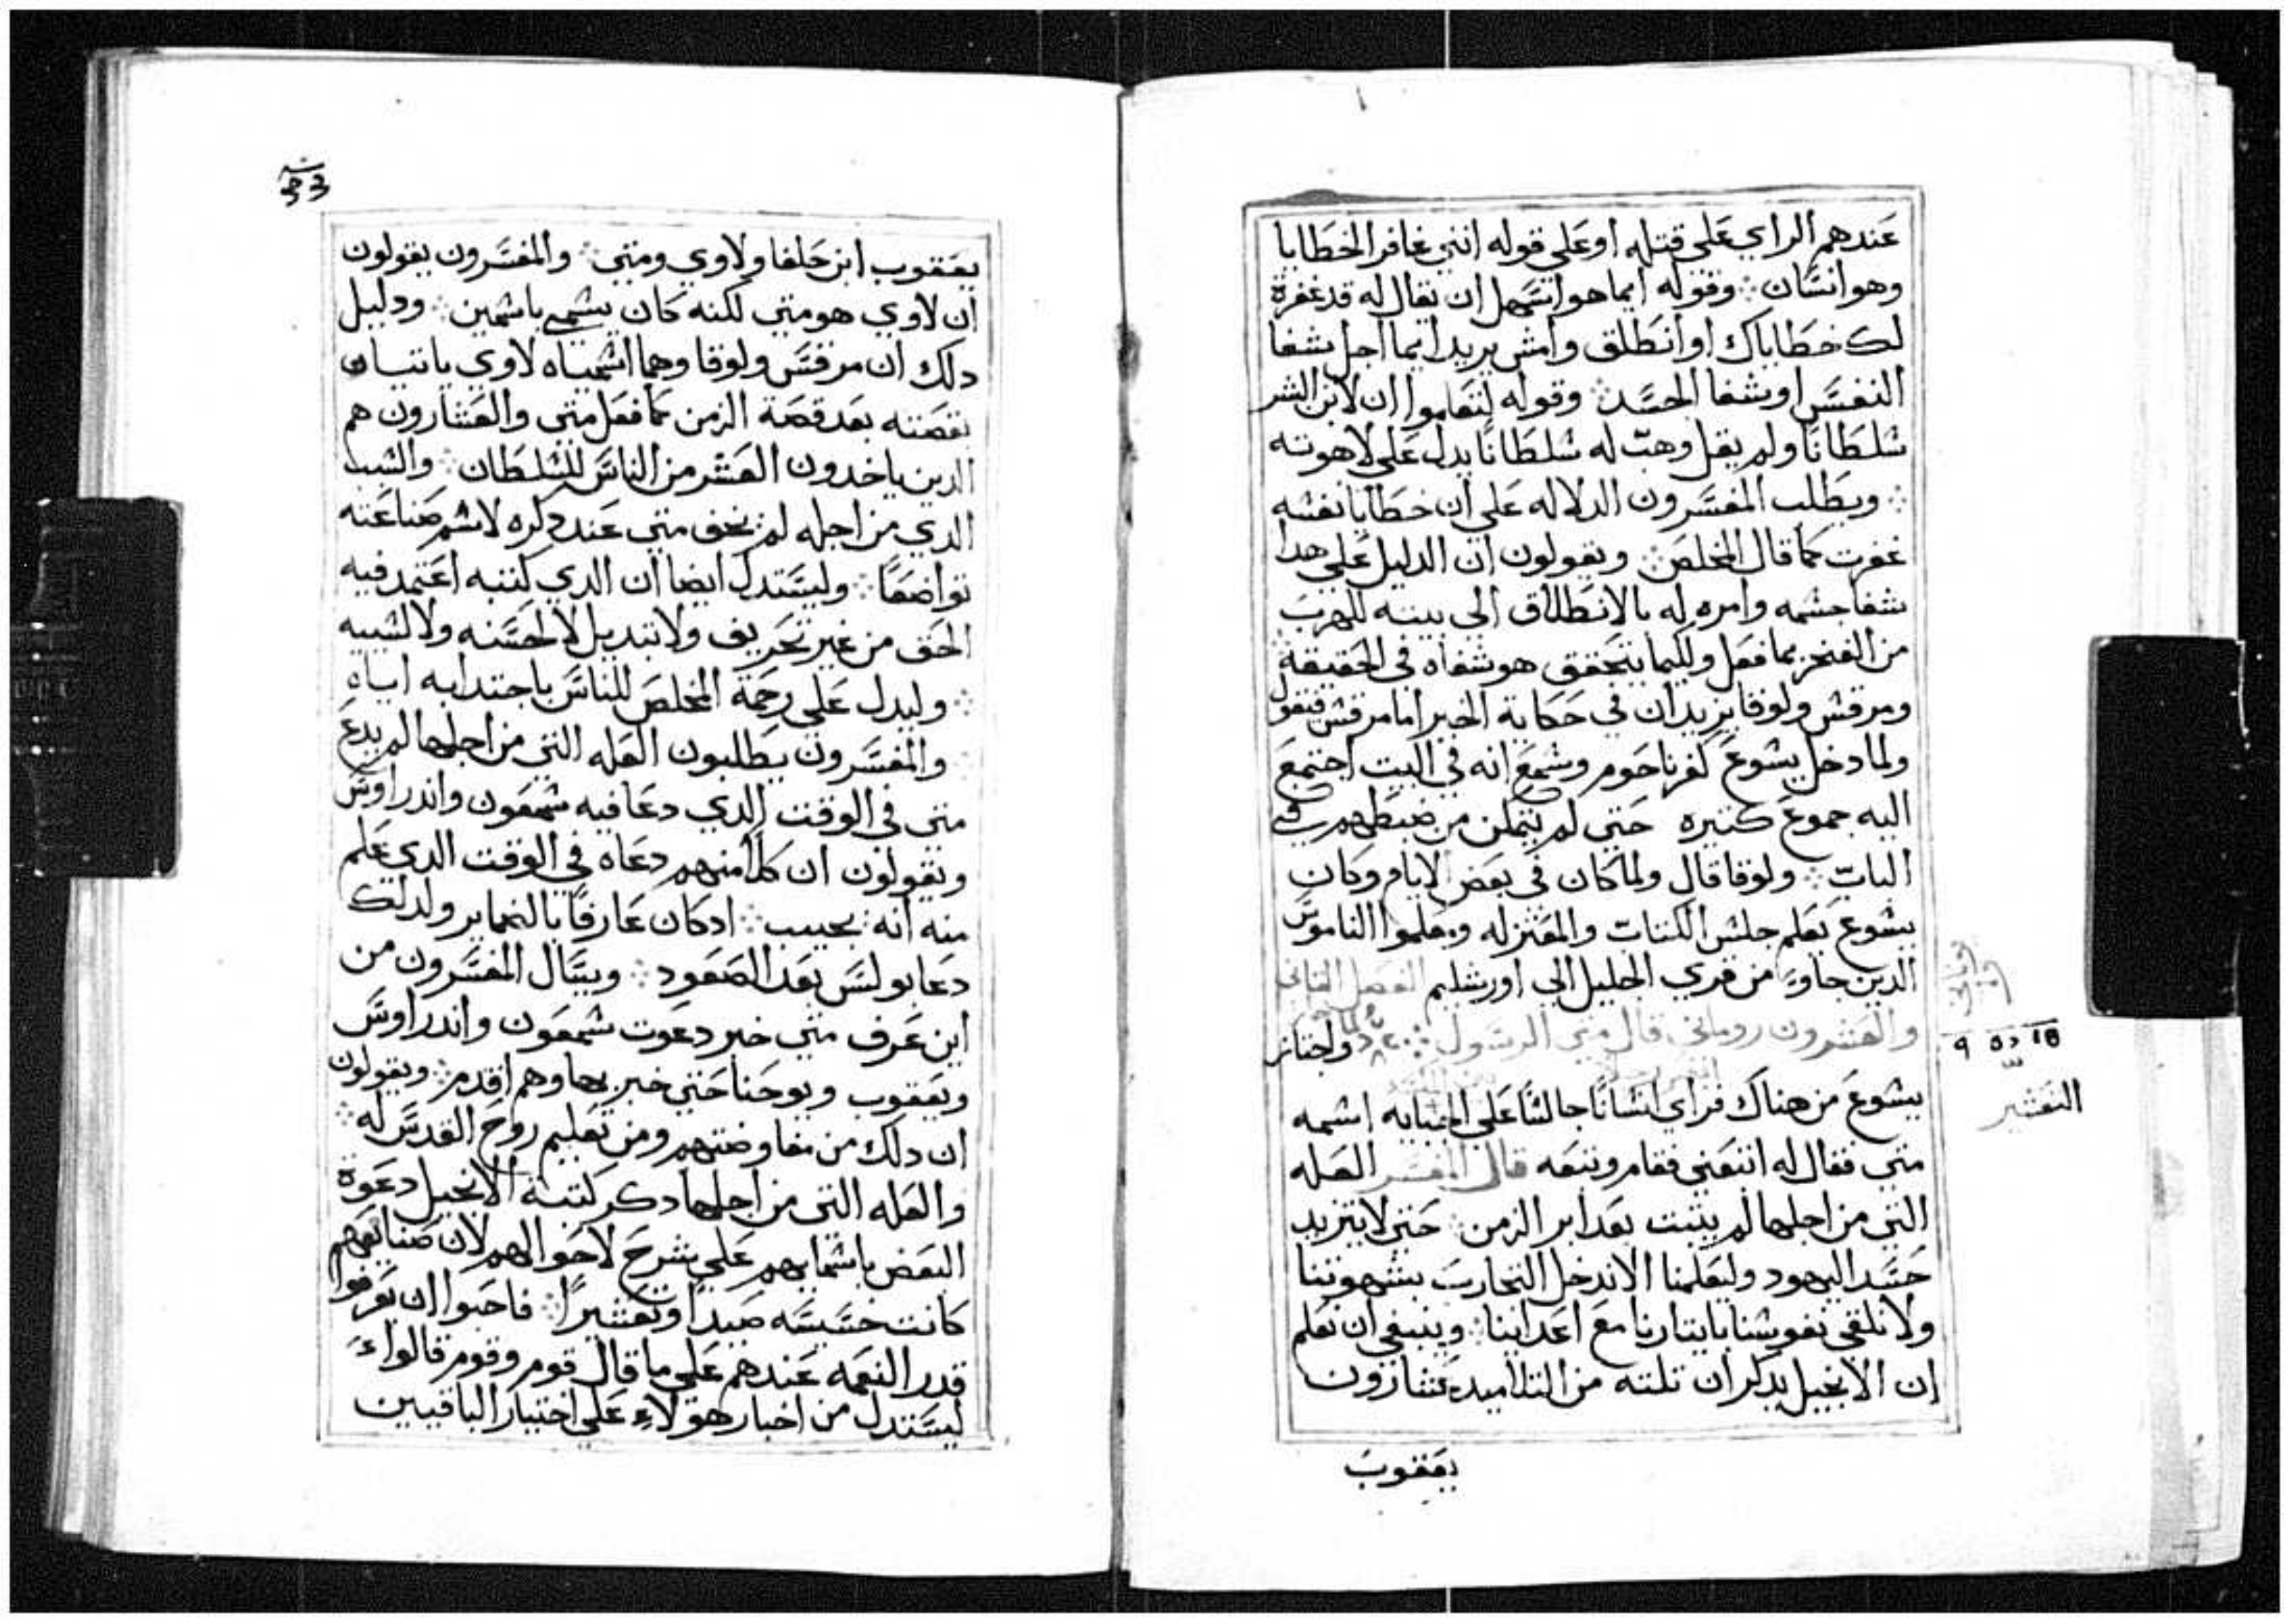 عندهم الراي على قتله او على قوله انني غافر الخطايا
وهو انسان ⁘ وقوله ايما هو اسهل ان يقال له قد غفرة
لك خطاياك او انطلق وامش يريد ايما اجل شفا
النفس او شفا الجسد ⁘ وقوله لتعلموا ان لابن البشر
سلطانا ولم يقل وهب له سلطانا يدل على لاهوته
⁘ ويطلب المفسرون الدلاله على ان خطايا نفسه
غفرت كما قال المخلص ⁘ ويقولون ان الدليل على هدا
شفا جسمه وامره له بالانطلاق الى بيته للهرب
من الفخر بما فعل ولكيما يتحقق هو شفاه في الحقيقة
ومرقس ولوقا يزيدان في حكاية الخبر اما مرقس فيقول
ولما دخل يشوع كفرناحوم وسمع انه في البيت اجتمع
اليه جموع كتيره حتى لم يتمكن من ضبطهم في
الباب ⁘ ولوقا قال ولما كان في بعض الايام وكان
يشوع يعلم جلس الكتاب والمعتزله ومعلموا الناموس
الدين جاوء من قري الجليل الى اورشليم الفصل التاني
والعشرون روماني قال متى الرسول ⁘ ولما اجتاز
يشوع من هناك فراي انسانا جالسا على الجبايه اسمه
متى فقال له اتبعني فقام وتبعه قال المفسر العله
التي من اجلها لم يتبت بعد ابر الزمن ⁘ حتى لا يتزيد
حسد اليهود وليعلمنا الا ندخل التجارب بشهوتنا
ولا نلقى نفوسنا بايتارنا مع اعداينا ⁘ وينبغي ان نعلم
ان الانجيل يدكر ان تلته من التلاميد عشارون
يعقوب
التعشير
يعقوب ابن حلفا ولاوي ومتى ⁘ والمفسرون يقولون
ان لاوي هو متى لكنه كان يسمى باسمين ⁘ ودليل
دلك ان مرقس ولوقا وهما اسمياه لاوي ياتيان
بقصته بعد قصة الزمن كما فعل متى والعشارون هم
الدين ياخدون العشر من الناس للسلطان ⁘ والسبب
الدي من اجله لم يخف متى عند دكره لاسم صناعته
تواضعا ⁘ وليستدل ايضا ان الدي كتبه اعتمد فيه
الحق من غير تحريف ولا تبديل لا لحسنه ولا لسييه
⁘ وليدل على رحمة المخلص للناس باجتدابه اياه
⁘ والمفسرون يطلبون العله التي من اجلها لم يدع
متى في الوقت الدي دعا فيه شمعون واندراوس
ويقولون ان كلا منهم دعاه في الوقت الدي علم
منه انه يجيب ⁘ اد كان عارفا بالضماير ولدلك
دعا بولس بعد الصعود ⁘ ويسال المفسرون من
اين عرف متى خبر دعوت شمعون واندراوس
ويعقوب ويوحنا حتى خبر بها وهم اقدم ⁘ ويقولون
ان دلك من مفاوضتهم ومن تعليم روح القدس له ⁘
والعله التي من اجلها دكر كتبة الانجيل دعوة
البعض باسمايهم على شرح لاحوالهم لان صنايعهم
كانت خسيسه صيدا وتعشيرا ⁘ فاحبوا ان يعرفوا
قدر النعمه عندهم على ما قال قوم وقوم قالواء
ليستدل من اخبار هولاء على اختيار الباقيين